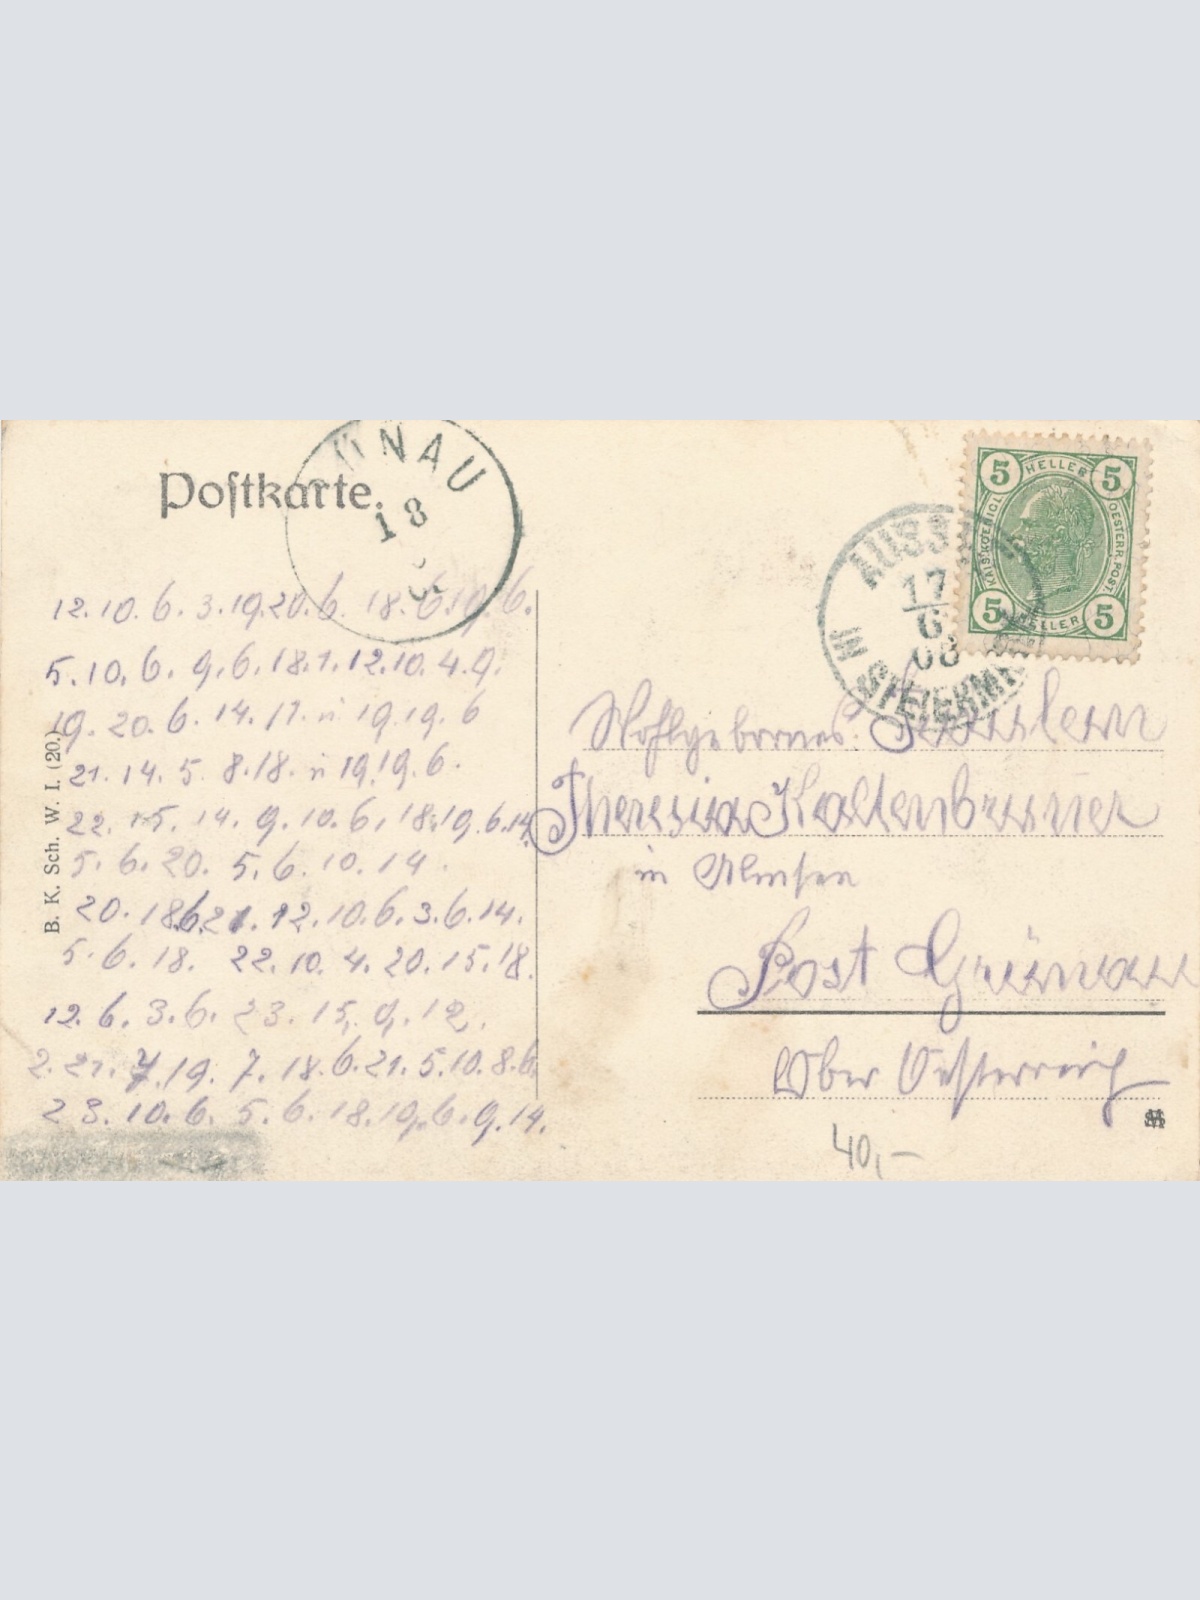 Postkarte.
ÜNAU
18
12.10.6.3.19.20.6. 18.6.19.6.
5.10.6. 9.6.18.1.12.10.4.9.
19.20.6.14.17. ü 19.19.6
21.14.5. 8.18. ü 19.19.6.
22. 15.14.9.10.6. 18.19.6.14.
5.6.20. 5.6.10.14.
20.18.6.21.12.10.6.3.6.14.
5.6.18. 22.10.4.20.15.18.
12.6.3.6. 23.15.9.12.
2.21.4.19.7.18.6.21.5.10.8.6.
23.10.6. 5.6.18.19.6.9.14.
B. K. Sch. W. I. (20.)
AUSS
17
6
08
IN STEIERM
5 HELLER 5
KAIS. KOENIGL. OESTERR. POST
5 HELLER 5
Wohlgebornes. Fräulein
Theresia Kaltenbruner
in Almsee
Post Grünau
Ober Oesterreich
40,–